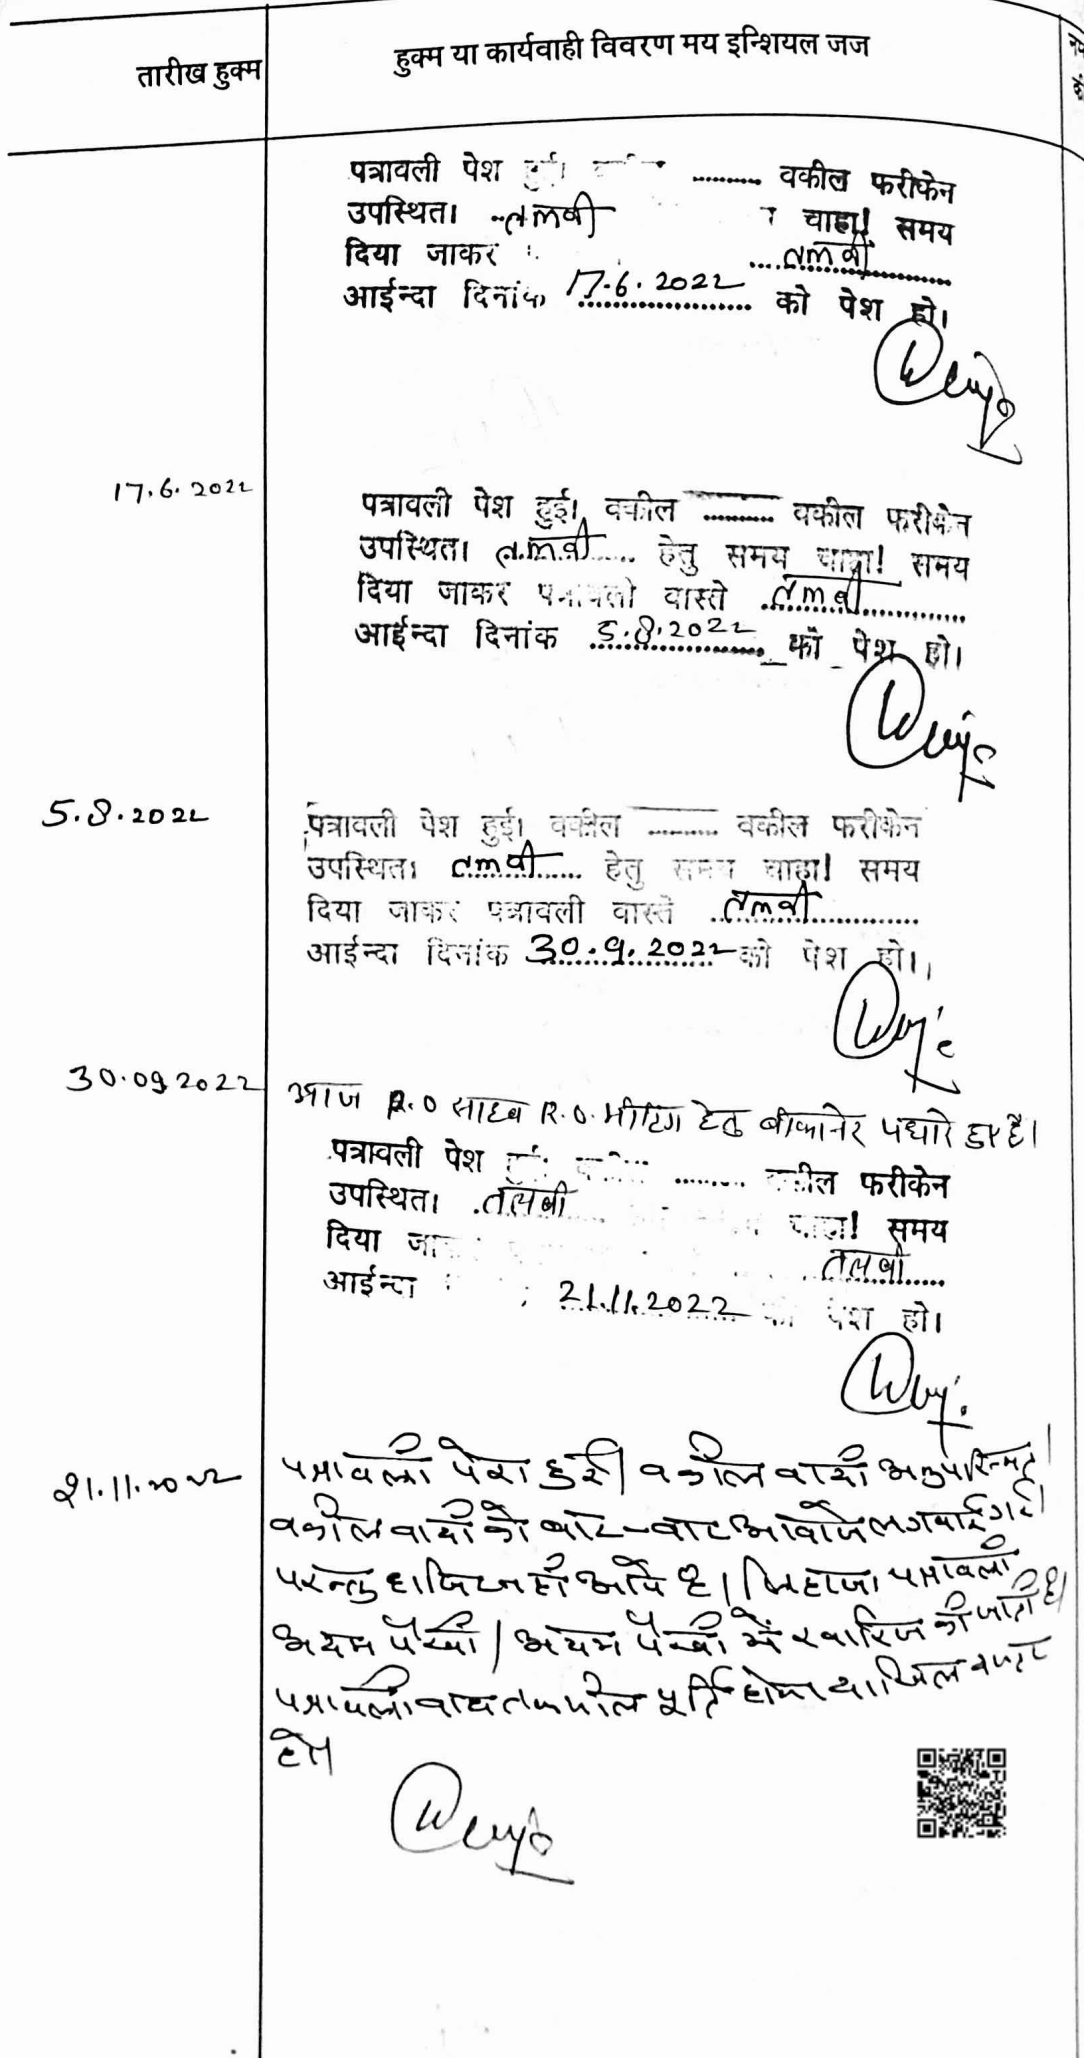 तारीख हुक्म
हुक्म या कार्यवाही विवरण मय इन्शियल जज
पत्रावली पेश हुई। .......... वकील फरीकेन
उपस्थित। तलबी चाहा! समय
दिया जाकर तलबी
आईन्दा दिनांक 17.6.2022 को पेश हो।
17.6.2022
पत्रावली पेश हुई। वकील .......... वकील फरीकेन
उपस्थित। तलबी हेतु समय चाहा! समय
दिया जाकर पत्रावली वास्ते तलबी
आईन्दा दिनांक 5.8.2022 को पेश हो।
5.8.2022
पत्रावली पेश हुई। वकील .......... वकील फरीकेन
उपस्थित। तलबी हेतु समय चाहा! समय
दिया जाकर पत्रावली वास्ते तलबी
आईन्दा दिनांक 30.9.2022 को पेश हो।
30.09.2022
आज R.O साहब R.O. मीटिंग हेतु बीकानेर पधारे हुए है।
पत्रावली पेश .......... वकील फरीकेन
उपस्थित। तलबी चाहा! समय
दिया तलबी
आईन्दा 21.11.2022 को पेश हो।
21.11.2022
पत्रावली पेश हुई। वकील वादी अनुपस्थित।
वकील वादी को बार-बार आवाजे लगवाई गई।
परन्तु हाजिर नहीं आये है। लिहाजा पत्रावली
अदम पैरवी। अदम पैरवी में खारिज की जाती है।
पत्रावली बाद तकमील पूर्ति होकर दाखिल दफ्तर
हो।